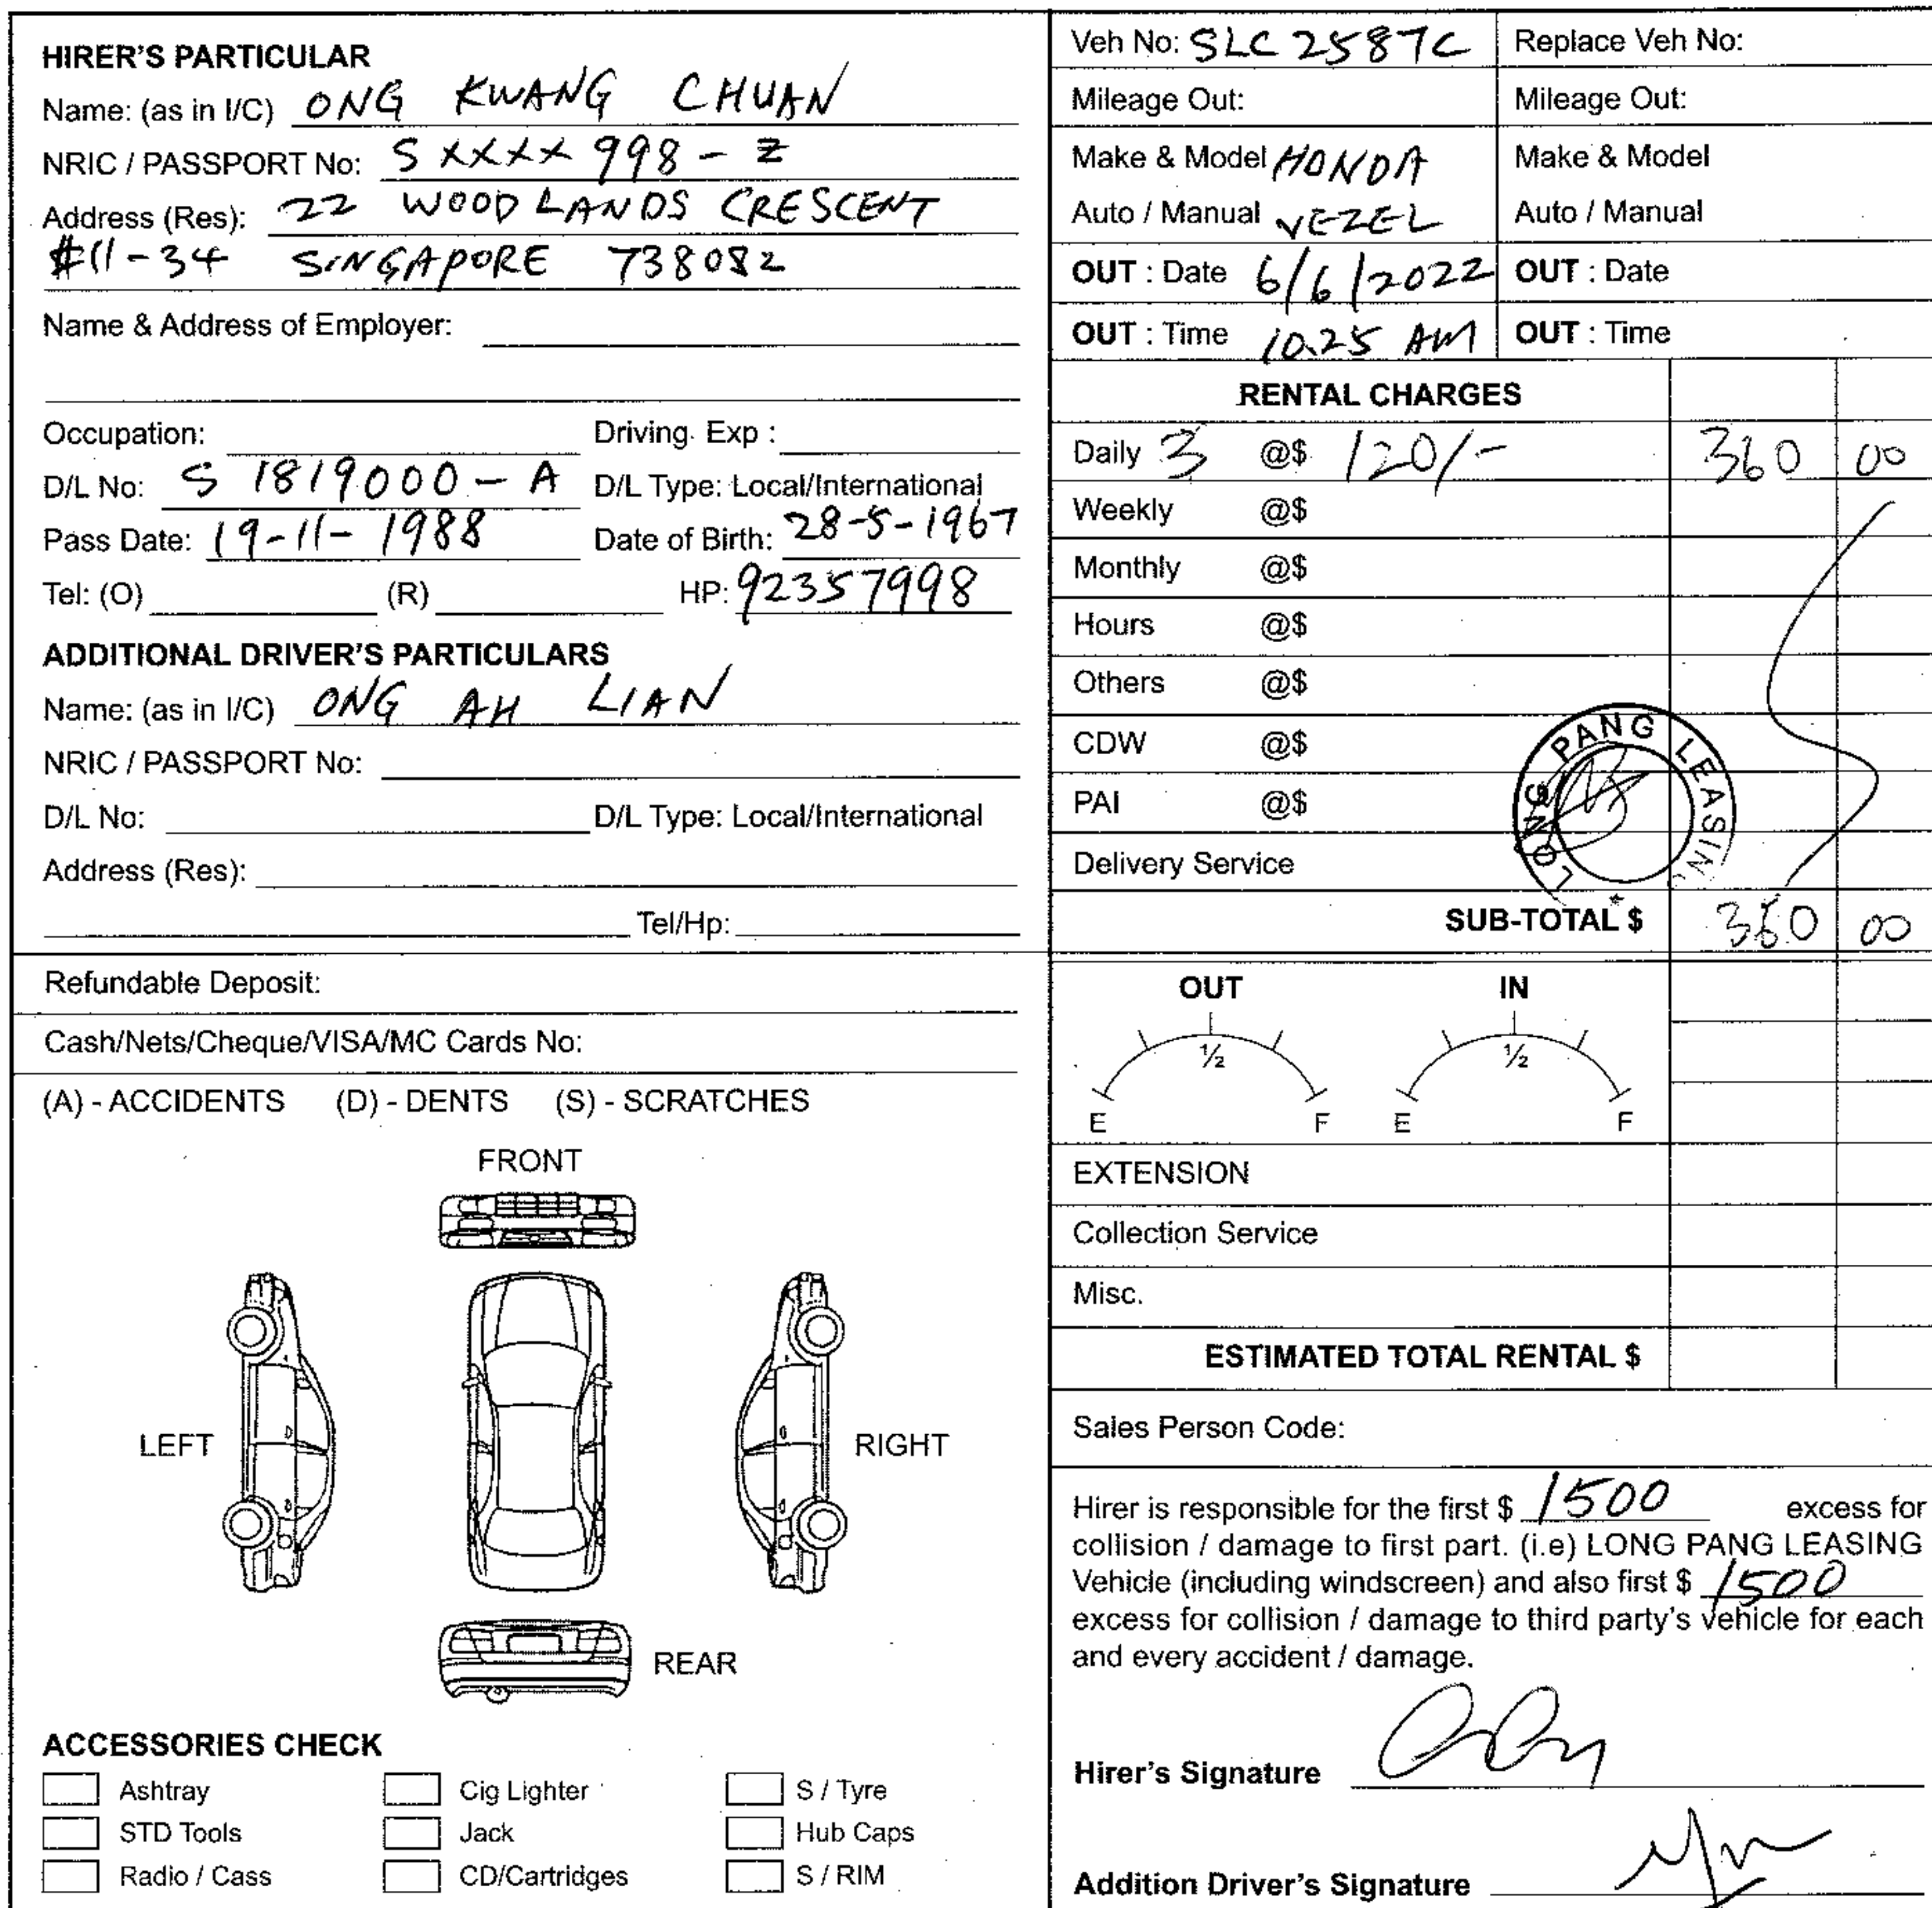 HIRER'S PARTICULAR
Name: (as in I/C) ONG KWANG CHUAN
NRIC / PASSPORT No: SXXXX998-Z
Address (Res): 22 WOODLANDS CRESCENT
#11-34 SINGAPORE 738082
Name & Address of Employer:
Occupation: Driving Exp :
D/L No: S 1819000-A D/L Type: Local/International
Pass Date: 19-11-1988 Date of Birth: 28-5-1967
Tel: (O) (R) HP: 92357998
ADDITIONAL DRIVER'S PARTICULARS
Name: (as in I/C) ONG AH LIAN
NRIC / PASSPORT No:
D/L No: D/L Type: Local/International
Address (Res):
Tel/Hp:
Refundable Deposit:
Cash/Nets/Cheque/VISA/MC Cards No:
(A) - ACCIDENTS (D) - DENTS (S) - SCRATCHES
FRONT
LEFT
RIGHT
REAR
ACCESSORIES CHECK
Ashtray Cig Lighter S / Tyre
STD Tools Jack Hub Caps
Radio / Cass CD/Cartridges S / RIM
Veh No: SLC 2587C Replace Veh No:
Mileage Out: Mileage Out:
Make & Model HONDA Make & Model
Auto / Manual VEZEL Auto / Manual
OUT : Date 6/6/2022 OUT : Date
OUT : Time 10.25 AM OUT : Time
RENTAL CHARGES
Daily 3 @$ 120/- 360 00
Weekly @$
Monthly @$
Hours @$
Others @$
CDW @$
PAI @$
LONG PANG LEASING
Delivery Service
SUB-TOTAL $ 360 00
OUT IN
½ ½
E F E F
EXTENSION
Collection Service
Misc.
ESTIMATED TOTAL RENTAL $
Sales Person Code:
Hirer is responsible for the first $ 1500 excess for
collision / damage to first part. (i.e) LONG PANG LEASING
Vehicle (including windscreen) and also first $ 1500
excess for collision / damage to third party's vehicle for each
and every accident / damage.
Hirer's Signature
Addition Driver's Signature